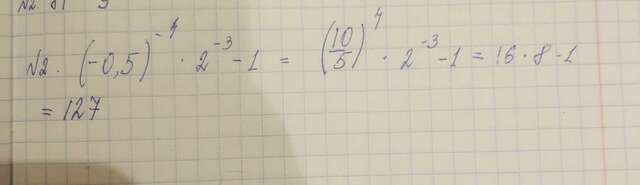 №2. (-0,5)^-4 · 2^-3 - 1 = (10/5)^4 · 2^-3 - 1 = 16 · 8 - 1
= 127